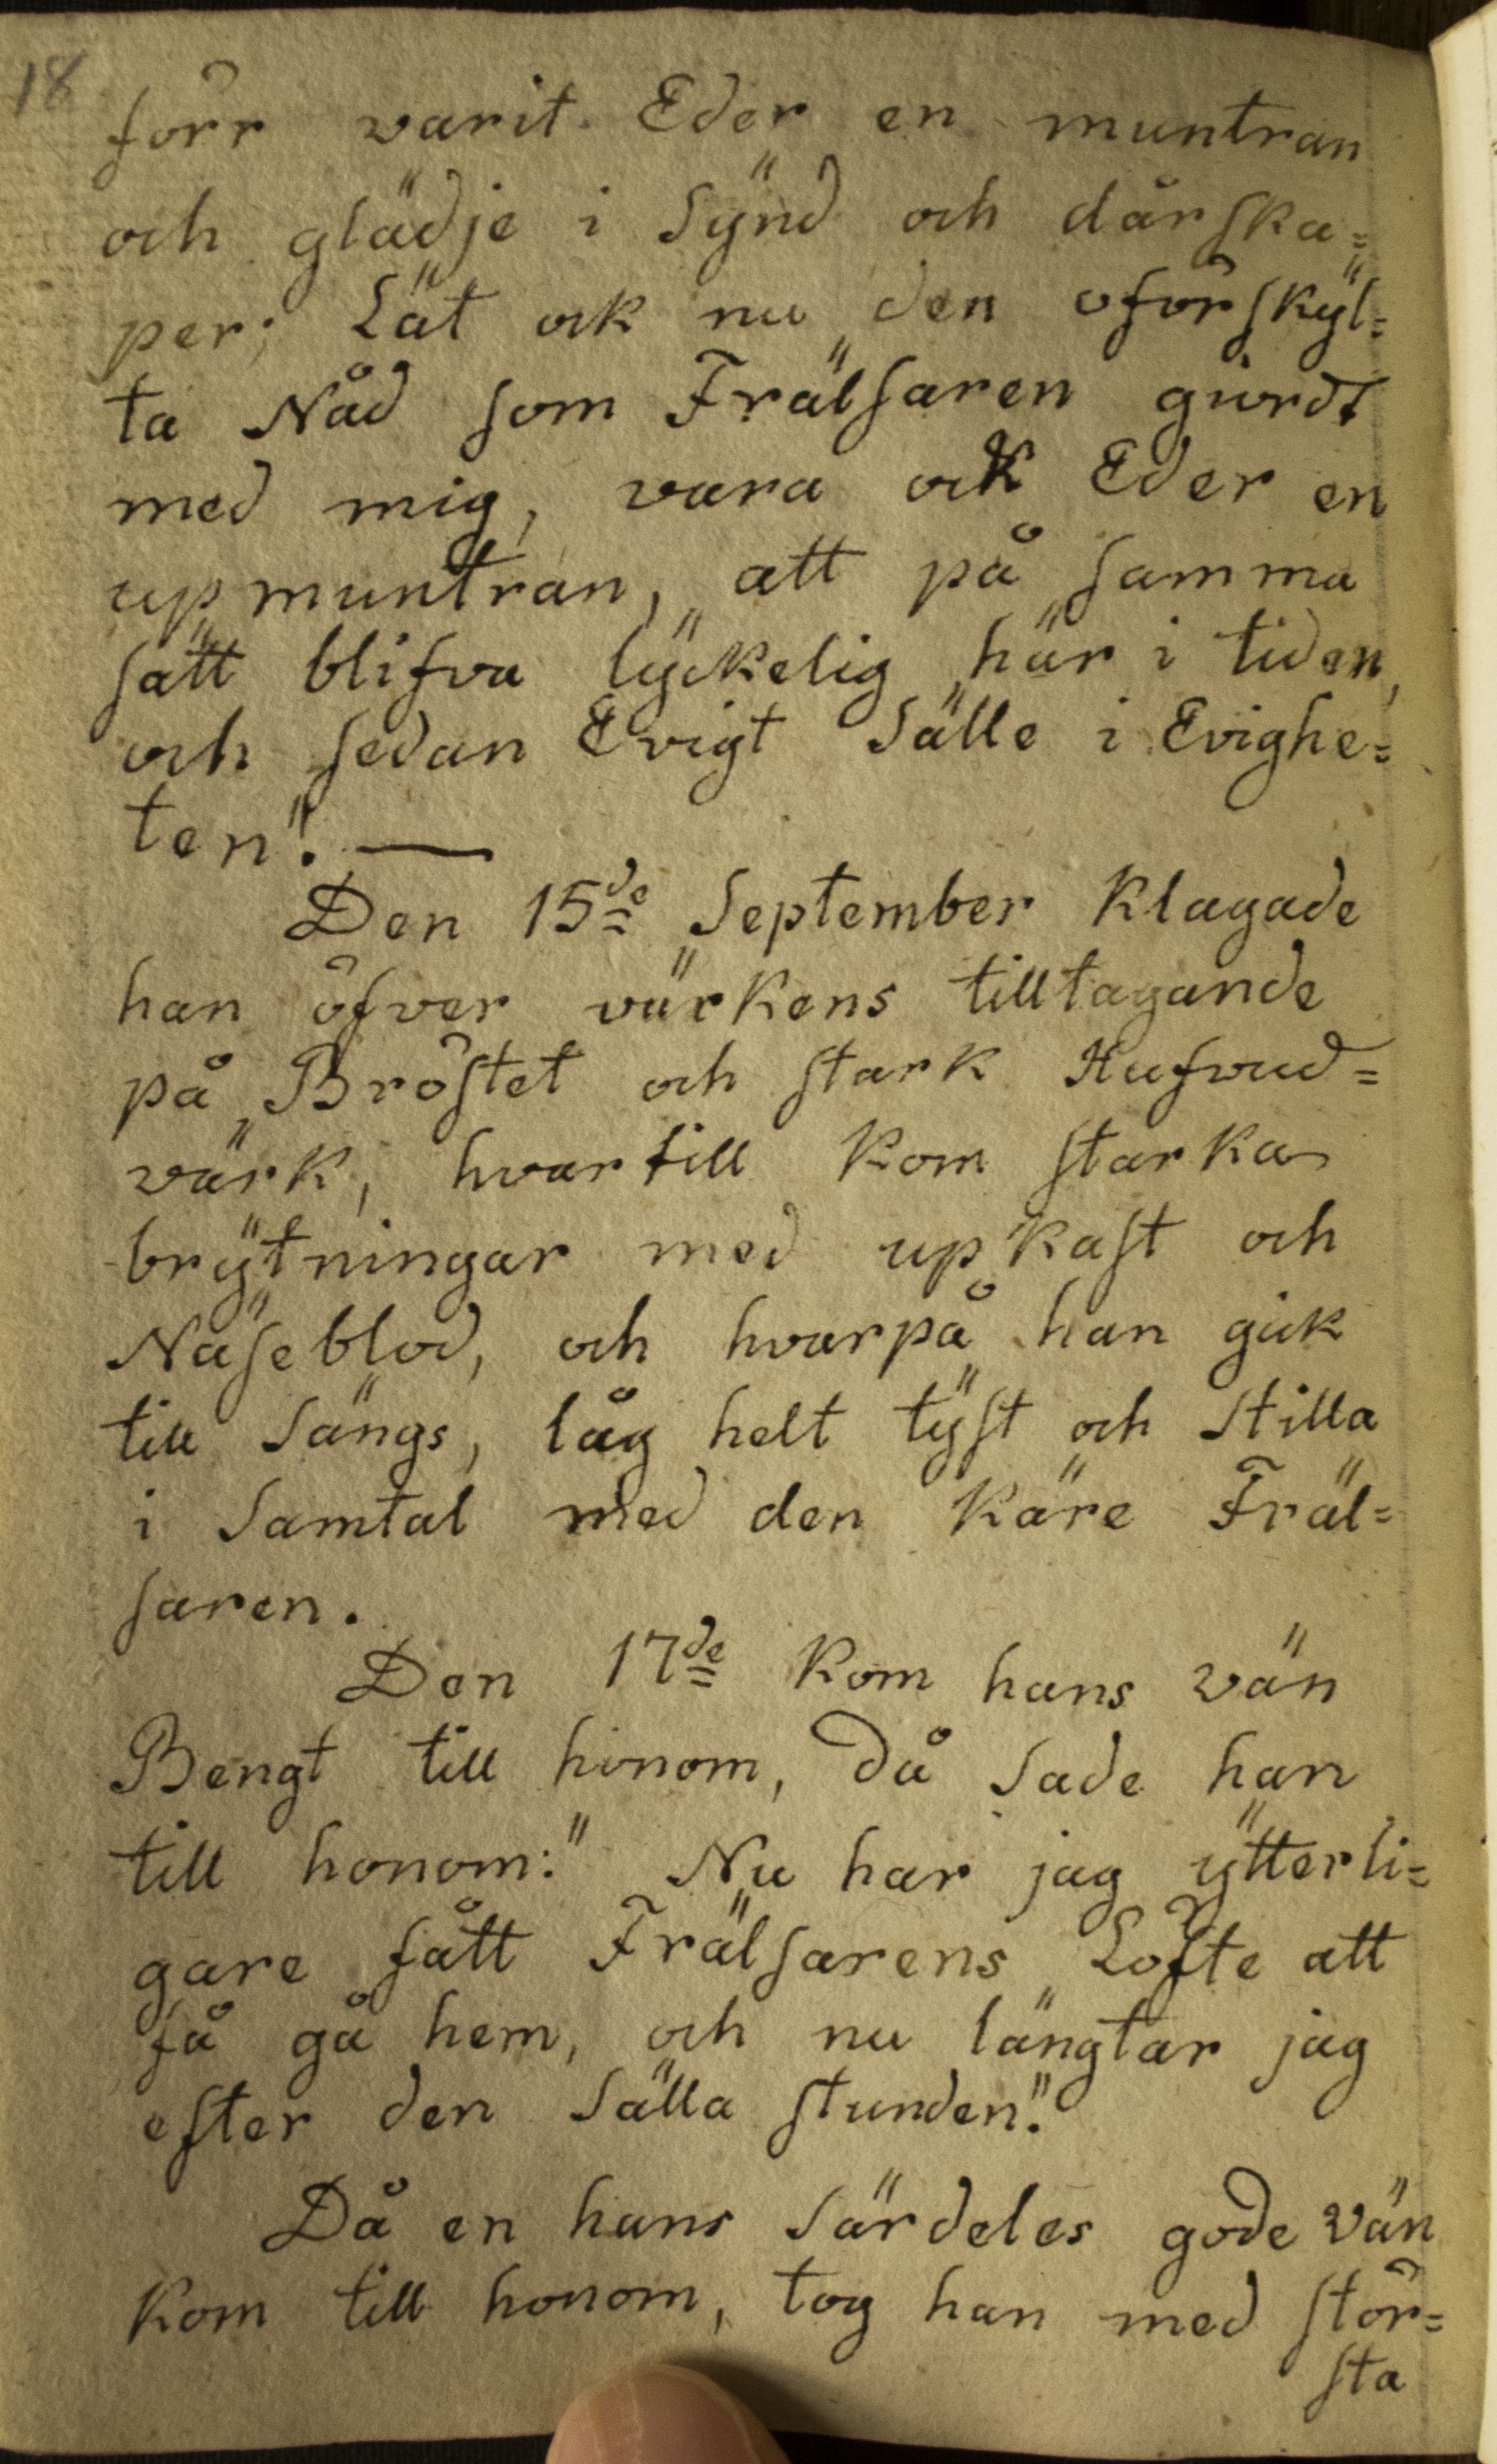 18
förr varit Eder en muntran
och glädje i Sÿnd och dårska=
per; Lät ock nu den oförskÿl=
ta Nåd som Frälsaren giordt
med mig, vara ock Eder en
upmuntran, att på samma
sätt blifva lÿckelig här i tiden,
och sedan Evigt Sälle i Evighe=
ten". —
Den 15de September Klagade
han öfver värkens tilltagande
på Bröstet och stark Hufvud=
värk, hvartill Kom starka
brÿtningar med upkast och
Näseblod, och hvarpå han gick
till Sängs, låg helt tÿst och Stilla
i Samtal med den Käre Fräl=
saren.
Den 17de Kom hans vän
Bengt till honom, då Sade han
till honom:" Nu har jag ÿtterli=
gare fått Frälsarens Löfte att
få gå hem, och nu längtar jag
efter den Sälla stunden".
Då en hans Särdeles gode vän
Kom till honom, tog han med stör=
sta